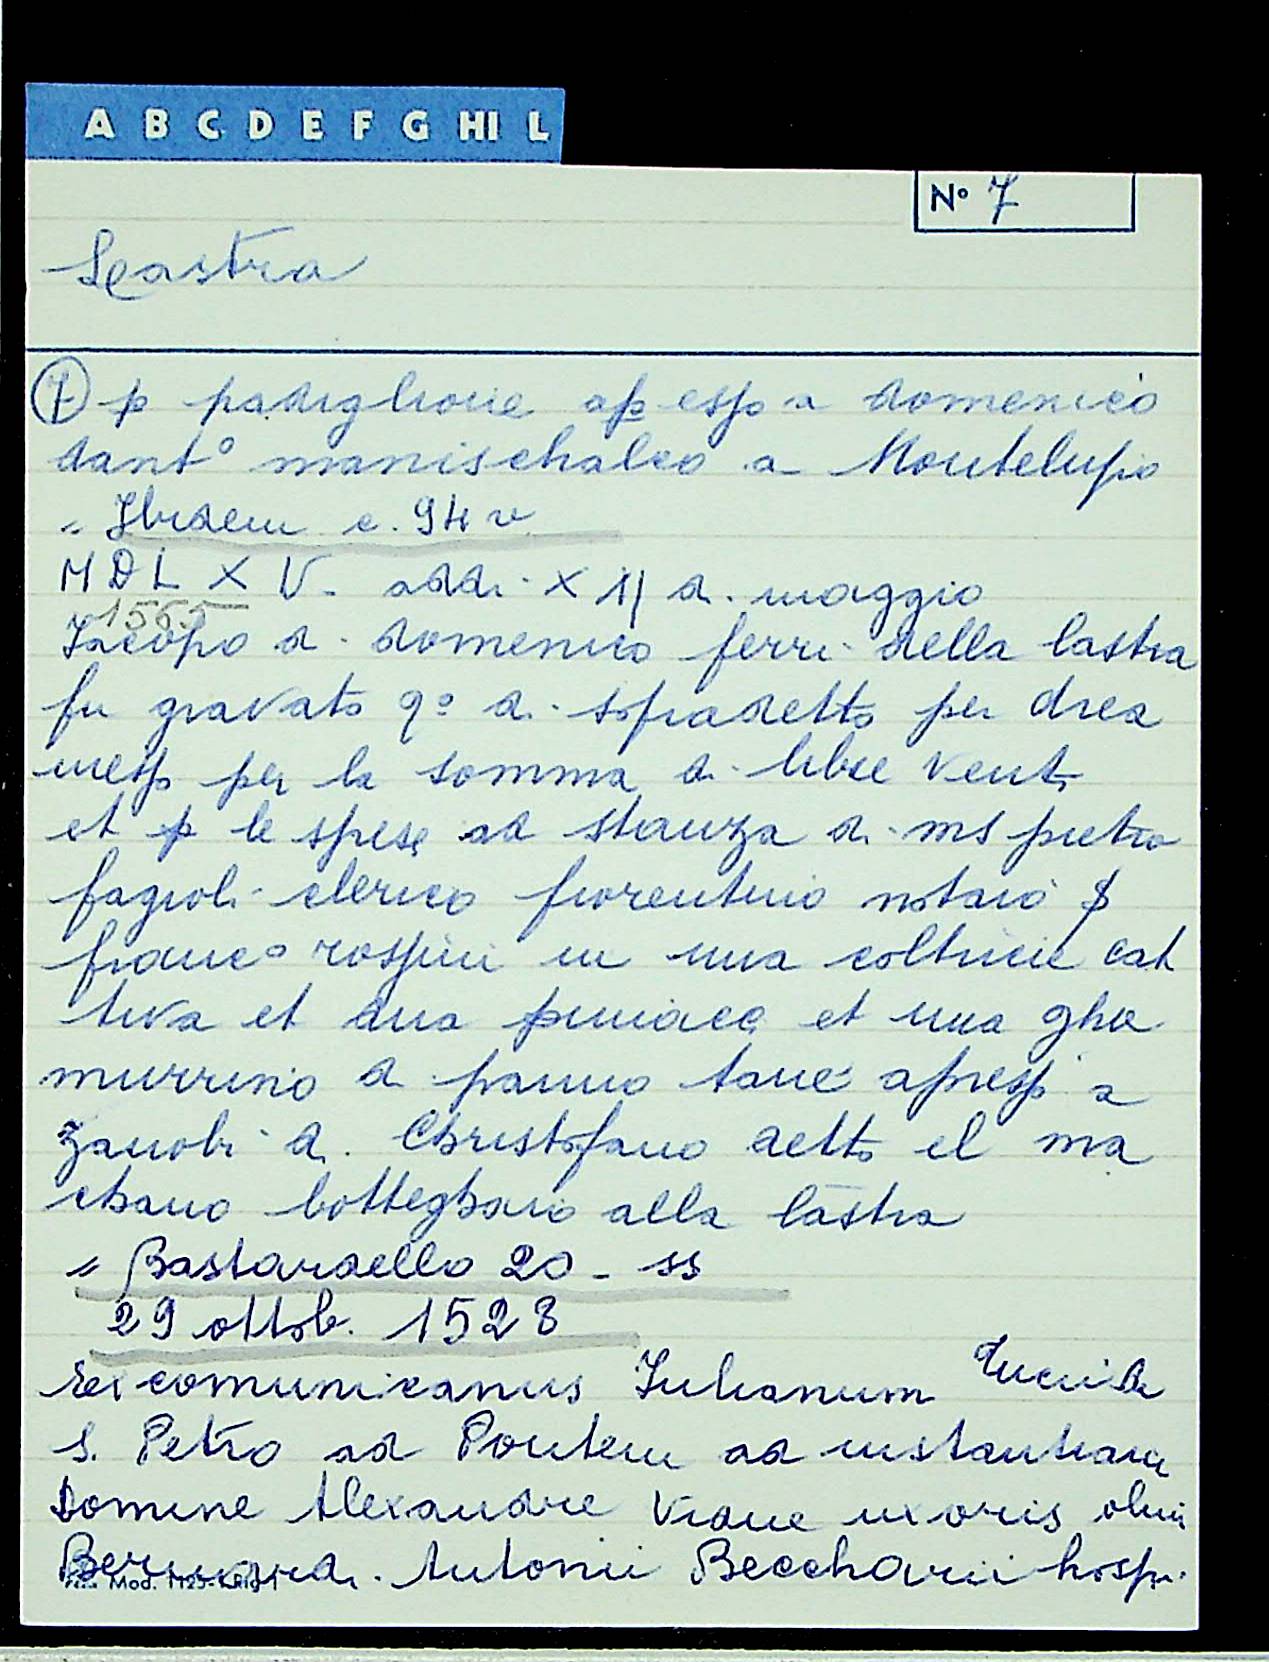 A B C D E F G HI L
N° 7
Lastra
7 p padiglione ap esp a domenico
dant° manischalco a Montelupo
" Ibidem c. 94 v
MDLXV - addi XII di maggio
1565
Jacopo di domenico ferri della lastra
fu gravato q° di sopradetto per drea
mesp per la somma di libre venti
et p le spese ad stanza di ms pietro
fagioli clerico fiorentino notaio
franc° rospini in una coltricie cat
tiva et dua et una gha
murrino di panno tane apresp a
Zanobi di Christofano detto el ma
chano botteghaio alla lastra
" Bastardello 20 - ss
29 ottob. 1528
Excomunicamus Iulianum
S. Petro ad Pontem ad instantiam
Domine Alexandre vidue uxoris olim
Bernardi Antonii Beccharii hosp.